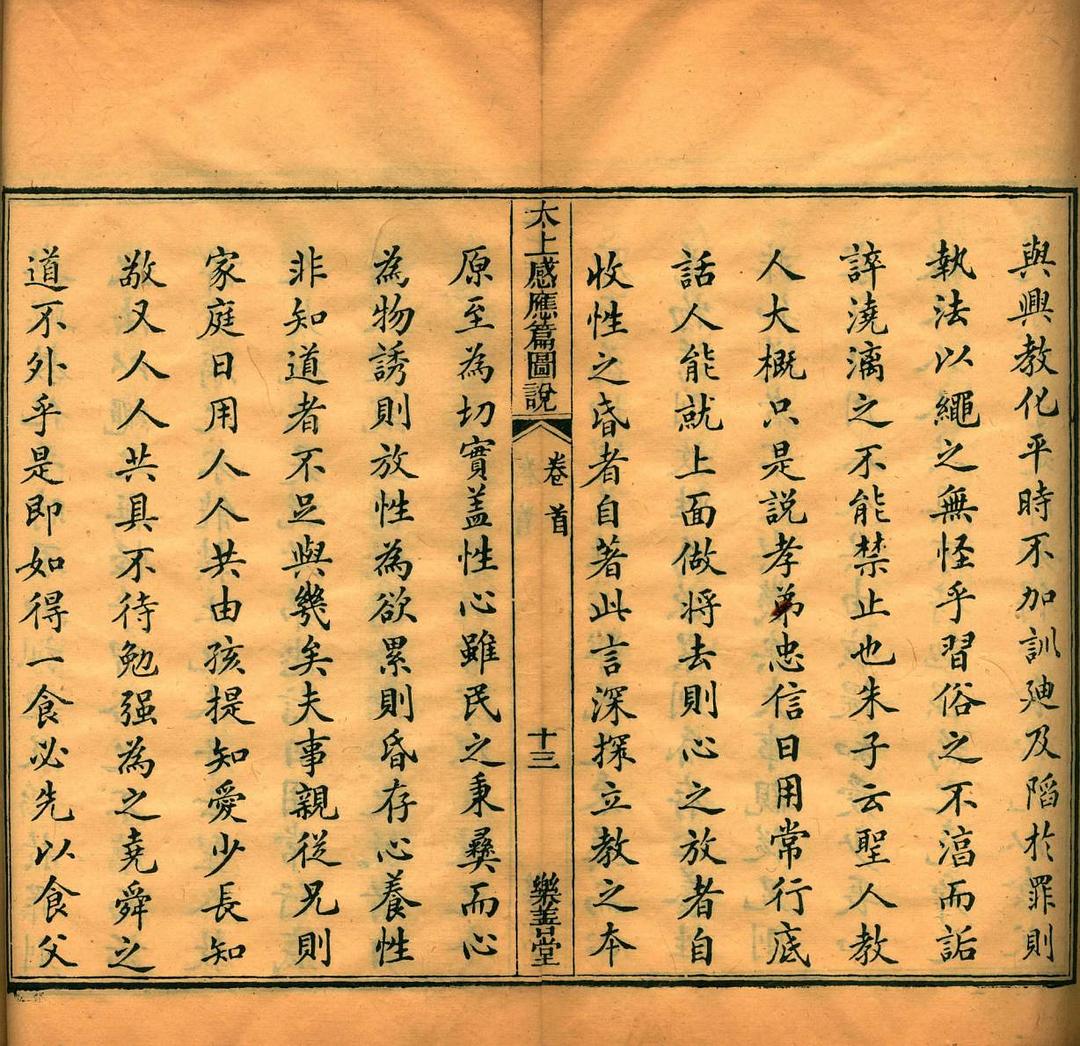 與興教化平時不加訓廸及陷於罪則
執法以繩之無怪乎習俗之不淳而詬
誶澆漓之不能禁止也朱子云聖人教
人大概只是説孝弟忠信日用常行底
話人能就上面做將去則心之放者自
收性之昏者自著此言深探立教之本
太上感應篇圖說
卷首
十三
樂善堂
原至為切實盖性心雖民之秉彝而心
為物誘則放性為欲累則昏存心養性
非知道者不足與幾矣夫事親從兄則
家庭日用人人共由孩提知愛少長知
敬又人人共具不待勉强為之堯舜之
道不外乎是即如得一食必先以食父